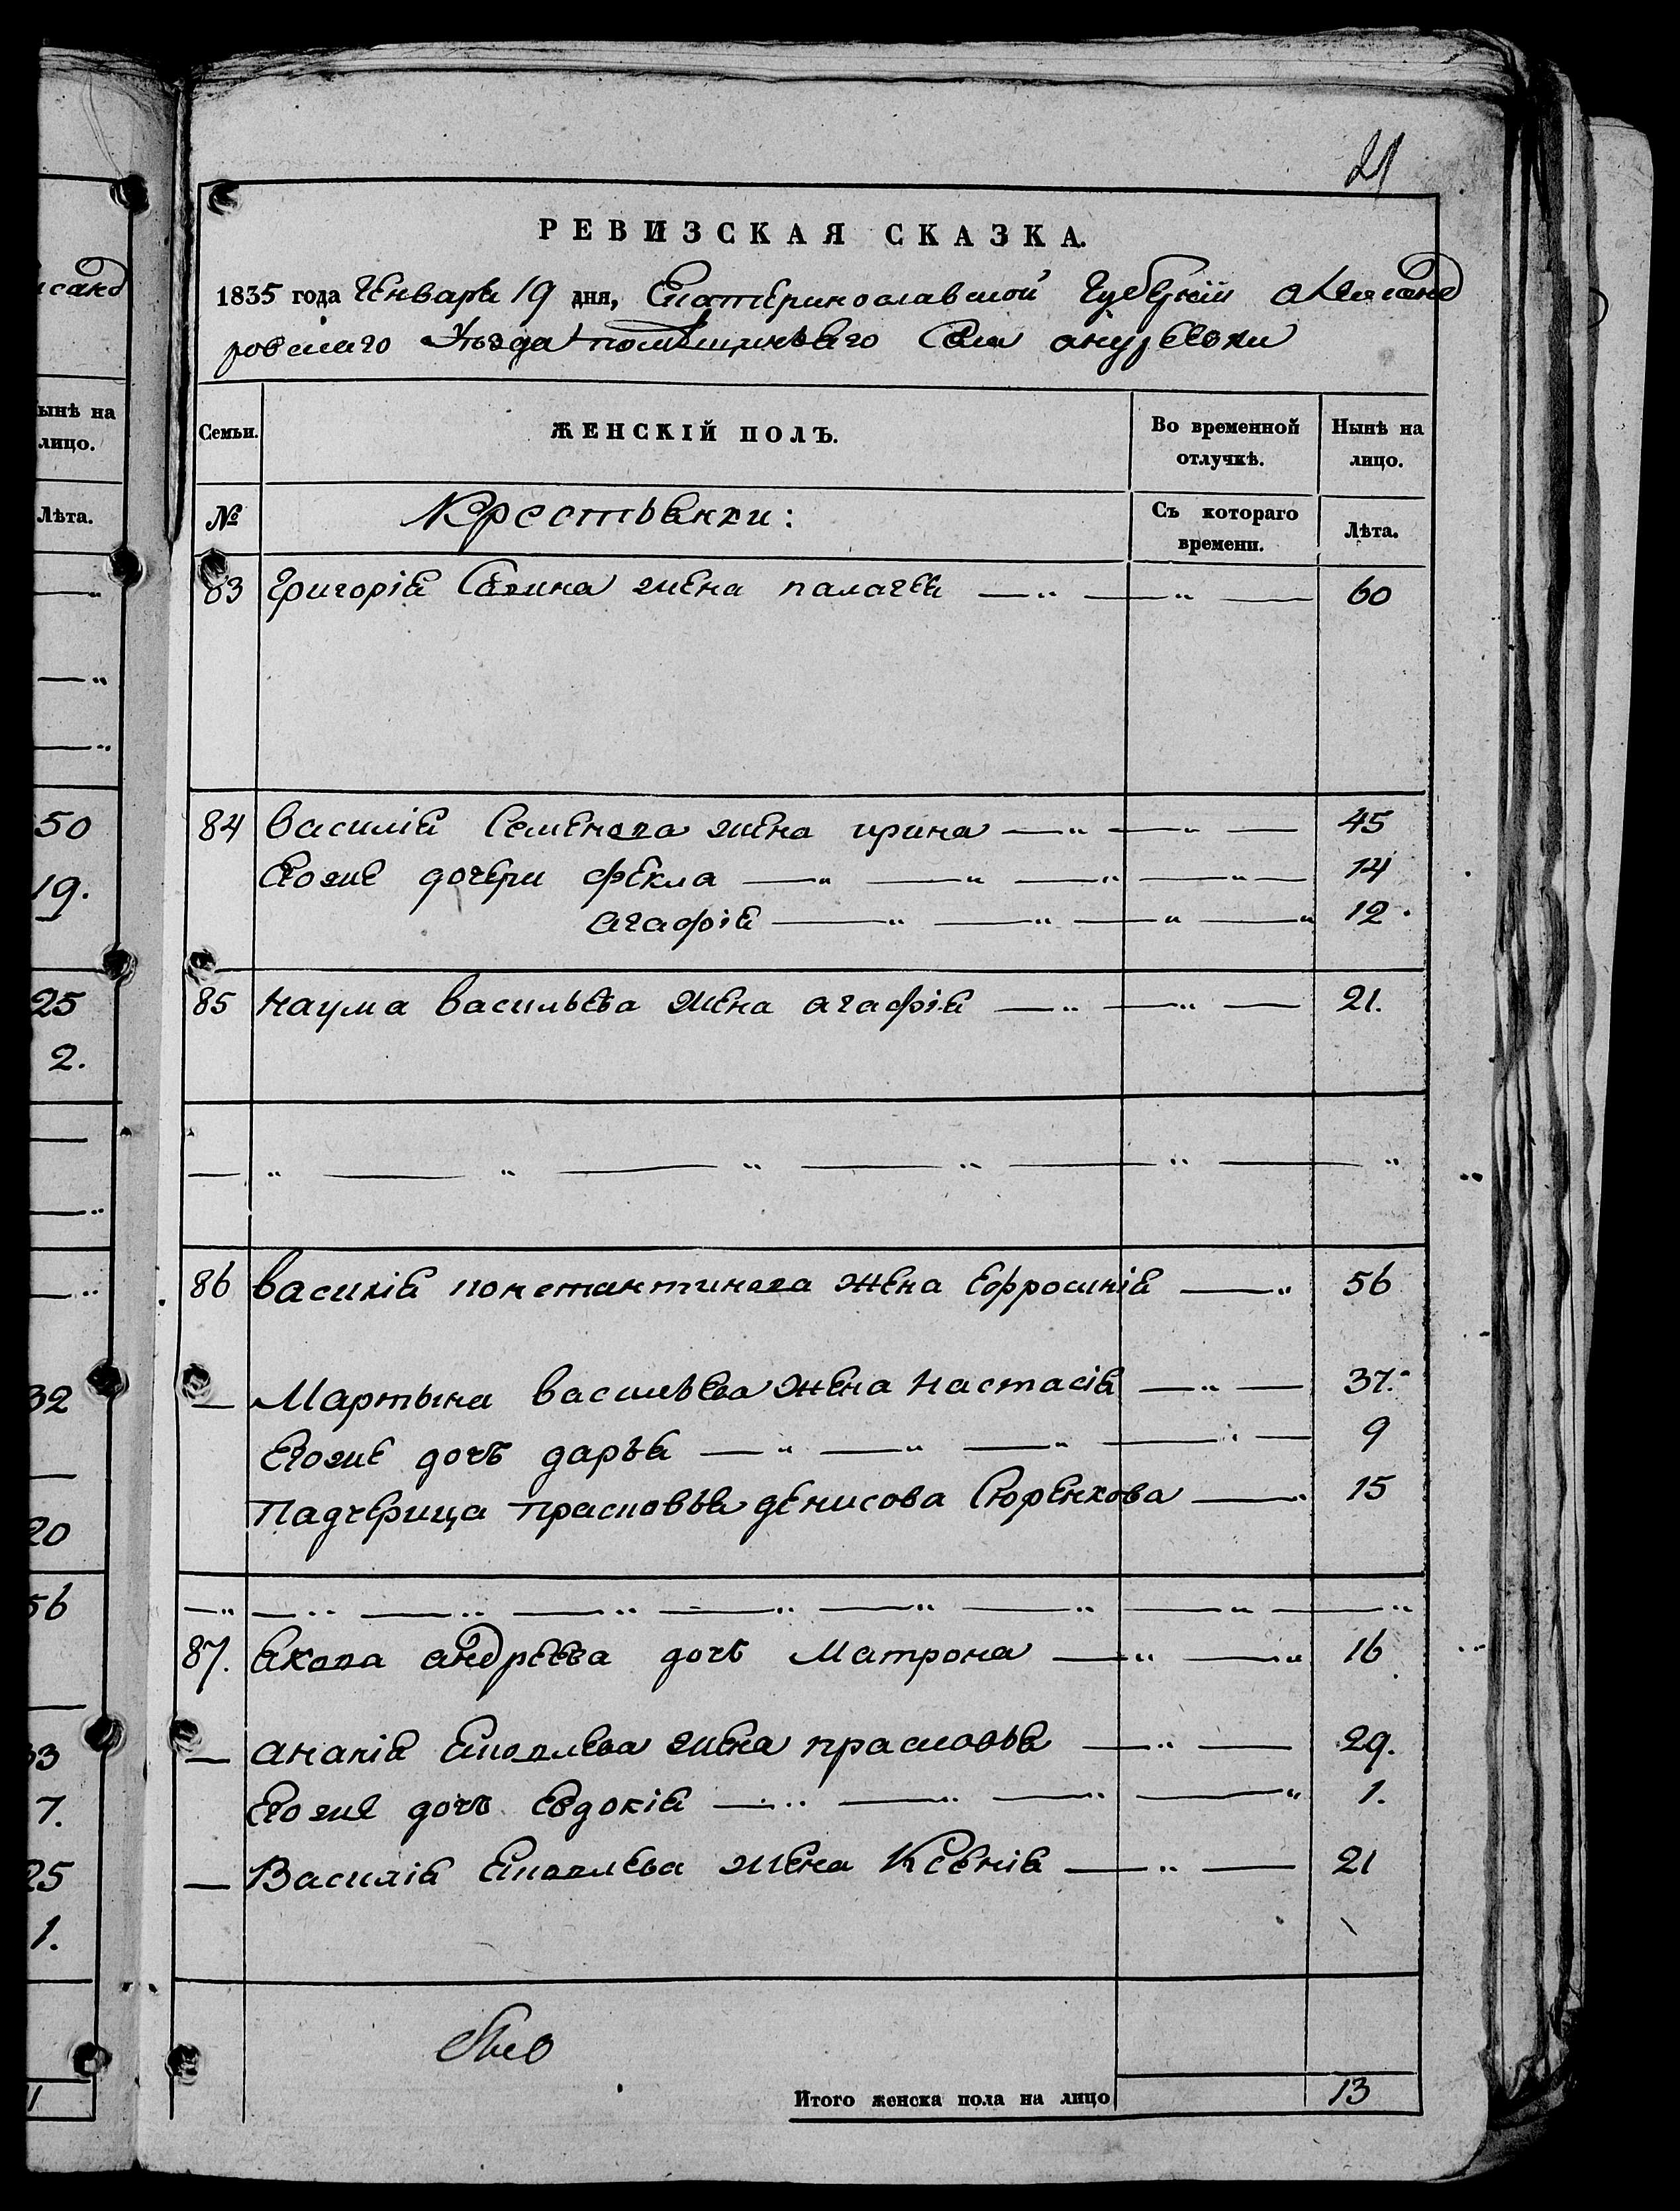 21
РЕВИЗСКАЯ СКАЗКА.
1835 года Генваря 19 дня, Екатеринославской Губерніи Александ
ровскаго Уезда помещичьяго Села
исанд
Семьи.
ЖЕНСКІЙ ПОЛЪ.
Во временной отлучкѣ.
Нынѣ на лицо.
ынѣ на лицо.
№
Крестьянки:
Съ котораго времени.
Лѣта.
Лѣта.
83 Григорія Савина жена палагея 60
84 василія Семенова жена ирина 45
Егоже дочери фекла 14
агафія 12.
85 наума васильева жена агафія 21.
86 василія константинова жена Ефросинія 56
Мартына васильева жена настасія 37.
Егоже дочь дарья 9
Падчерица прасковья денисова Сюренкова 15
87. якова андреева дочь Матрона 16
ананія яковлева жена прасковья 29.
Егоже дочь Евдокія 1.
Василія яковлева жена Ксенія 21
Итого женска пола на лицо 13
50
19.
25
2.
32
20
56
33
7.
25
1.